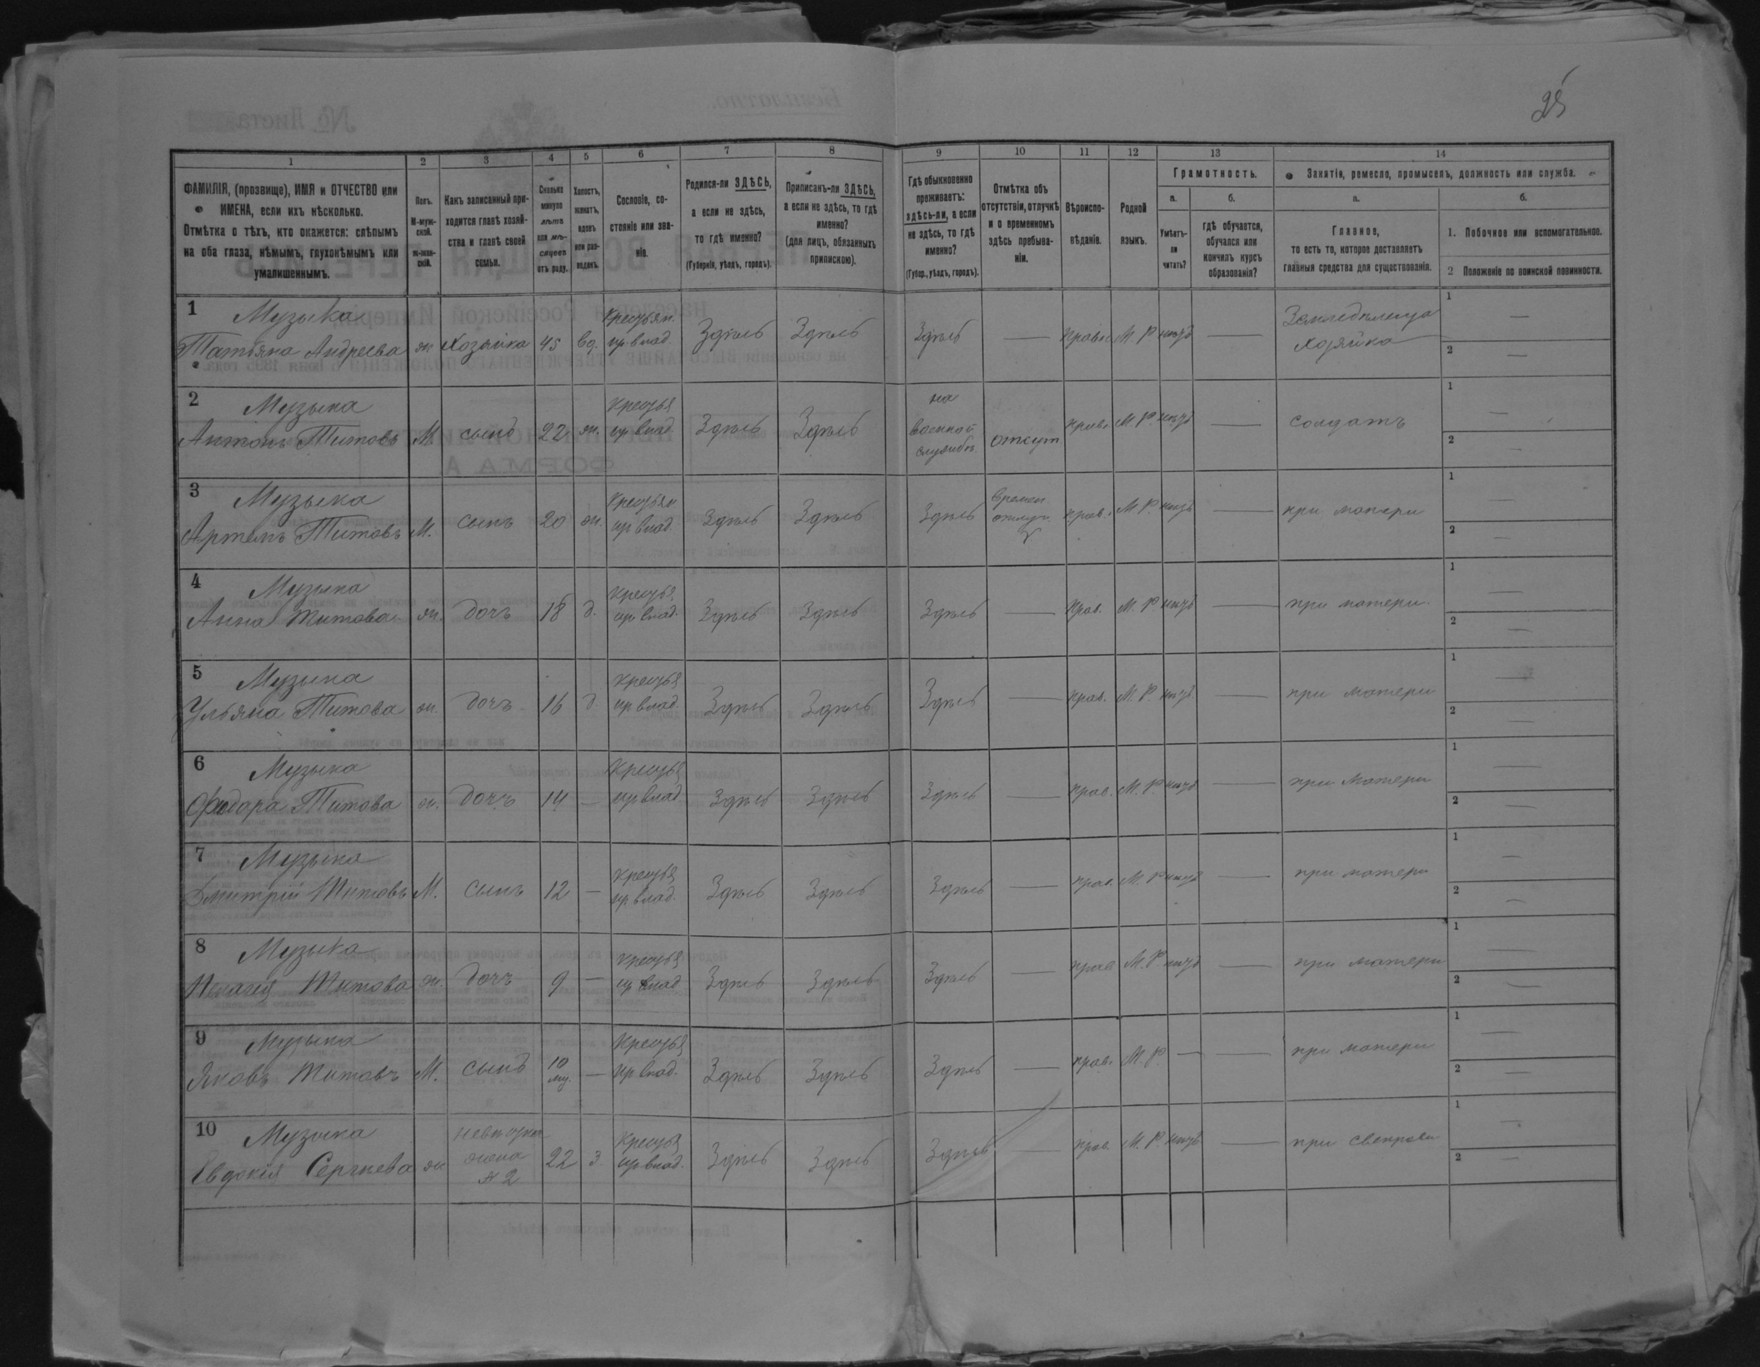 25
1 2 3 4 5 6 7 8 9 10 11 12 13 14
ФАМИЛІЯ, (прозвище), ИМЯ и ОТЧЕСТВО или
ИМЕНА, если ихъ нѣсколько.
Отмѣтка о тѣхъ, кто окажется: слѣпымъ
на оба глаза, нѣмымъ, глухонѣмымъ или
умалишеннымъ.
Полъ.
М-муж-
ской.
ж-жен-
скій.
Какъ записанный при-
ходится главѣ хозяй-
ства и главѣ своей
семьи.
Сколько
минуло
лѣтъ
или мѣ-
сяцевъ
отъ роду.
Холостъ,
женатъ,
вдовъ
или раз-
веденъ.
Сословіе, со-
стояніе или зва-
ніе.
Родился-ли ЗДѢСЬ,
а если не здѣсь,
то гдѣ именно?
(Губернія, уѣздъ, городъ).
Приписанъ-ли ЗДѢСЬ,
а если не здѣсь, то гдѣ
именно?
(для лицъ, обязанныхъ
припискою).
Гдѣ обыкновенно
проживаетъ:
здѣсь-ли, а если
не здѣсь, то гдѣ
именно?
(Губер., уѣздъ, городъ).
Отмѣтка объ
отсутствіи, отлучкѣ
и о временномъ
здѣсь пребыва-
ніи.
Вѣроиспо-
вѣданіе.
Родной
языкъ.
Грамотность.
а.
Умѣетъ-
ли
читать?
б.
гдѣ обучается,
обучался или
кончилъ курсъ
образованія?
Занятіе, ремесло, промыселъ, должность или служба.
а.
Главное,
то есть то, которое доставляетъ
главныя средства для существованія.
б.
1. Побочное или вспомогательное.
2 Положеніе по воинской повинности.
1 Музыка Крестьян. Земледѣлица 1 —
Татьяна Андреева ж Хозяйка 45 вд. пр влад. Здѣсь Здѣсь Здѣсь — прав. М Р нѣтъ — хозяйка 2 —
2 Музыка Крестья на 1 —
Антонъ Титовъ М. сынъ 22 ж. пр влад. Здѣсь Здѣсь военной службѣ отсут прав. М Р. нѣтъ — солдатъ 2 —
3 Музыка Крестьян Времен 1 —
Артемъ Титовъ М. сынъ 20 ж. пр влад Здѣсь Здѣсь Здѣсь отлуч прав. М. Р нѣтъ — при матери 2 —
4 Музыка Крестья 1 —
Анна Титова ж. дочь 18 д. пр влад. Здѣсь Здѣсь Здѣсь — прав. М. Р нѣтъ — при матери 2 —
5 Музыка крестья 1 —
Ульяна Титова ж. дочь 16 д пр влад. Здѣсь Здѣсь Здѣсь — прав. М. Р. нѣтъ — при матери 2 —
6 Музыка Крестья 1 —
Федора Титова ж. дочь 14 — пр влад Здѣсь Здѣсь Здѣсь — прав. М. Р нѣтъ — при матери 2 —
7 Музыка крестья 1 —
Дмитрій Титовъ М. сынъ 12 — пр влад. Здѣсь Здѣсь Здѣсь — прав. М. Р нѣтъ — при матери 2 —
8 Музыка крестья 1 —
Пелагея Титова ж. дочь 9 — пр влад Здѣсь Здѣсь Здѣсь — прав М. Р нѣтъ — при матери 2 —
9 Музыка Крестья 1 —
Яковъ Титовъ М. сынъ 10 — пр влад. Здѣсь Здѣсь Здѣсь — прав. М. Р — — при матери 2 —
10 Музыка невѣстка Крестья 1 —
Евдокія Сергѣева ж жена № 2 22 з. пр влад. Здѣсь Здѣсь Здѣсь — прав. М. Р нѣтъ — при свекрови 2 —